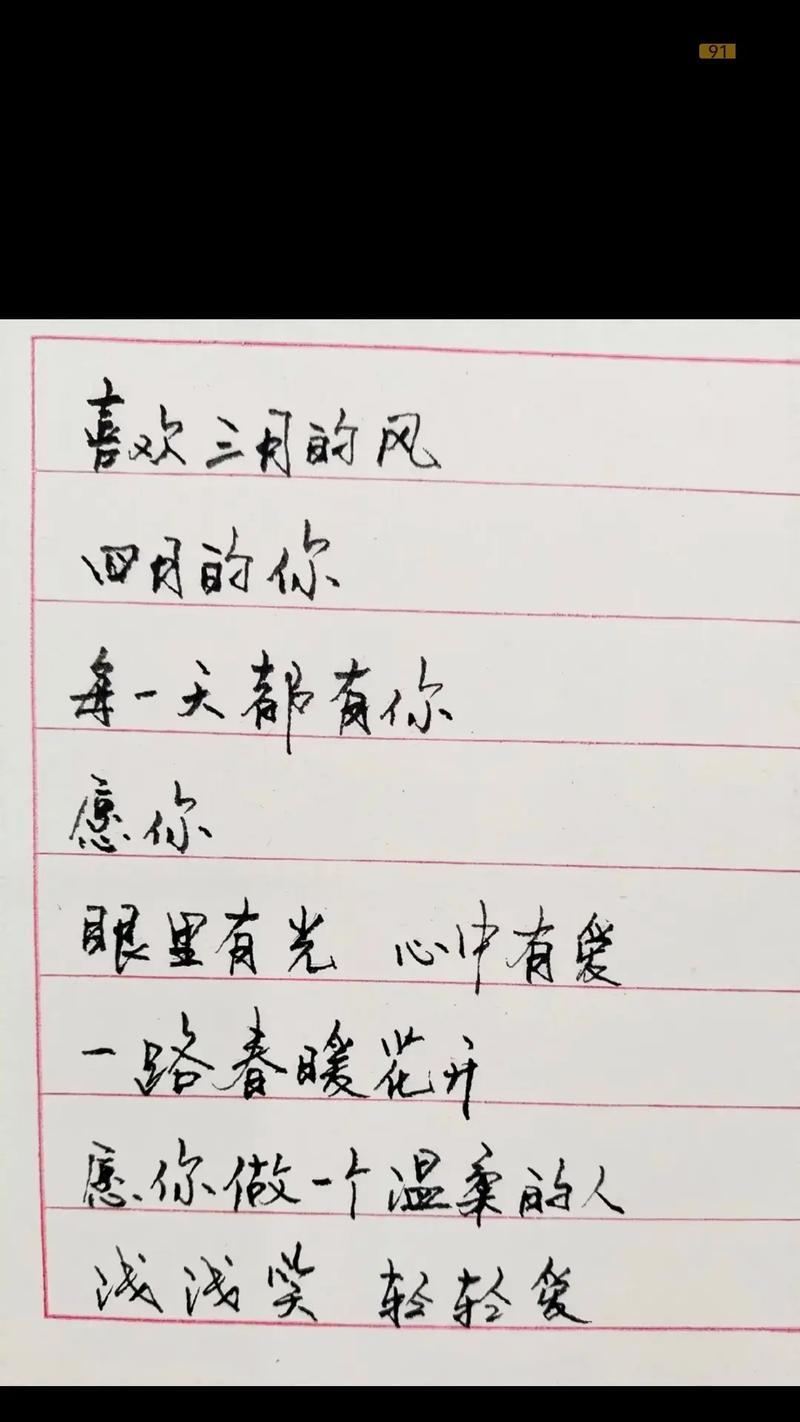 91
喜欢三月的风
四月的你
每一天都有你
愿你
眼里有光 心中有爱
一路春暖花开
愿你做一个温柔的人
浅浅笑 轻轻爱